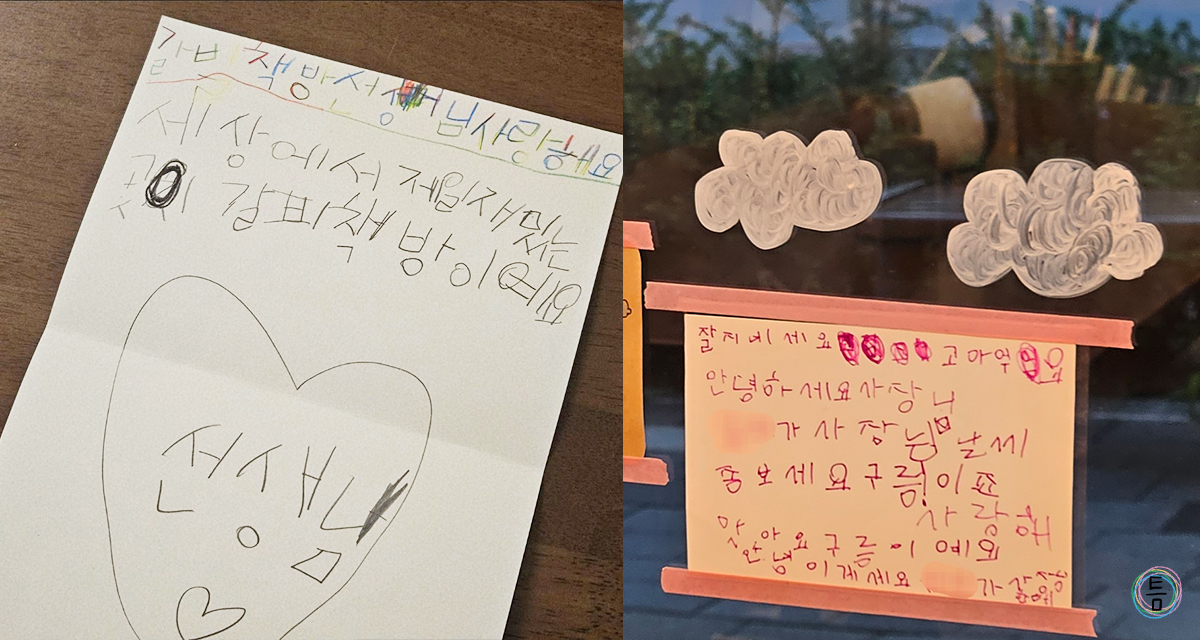 책방선생님사랑해요
세상에서 제일재밌는
갈피책방이예요
선생님
잘지에세요 고마워요
안녕하세요사장니
가사장님날씨
좀보세요구름이죠
사랑해
구름이예요
안녕이게세요 가
틈